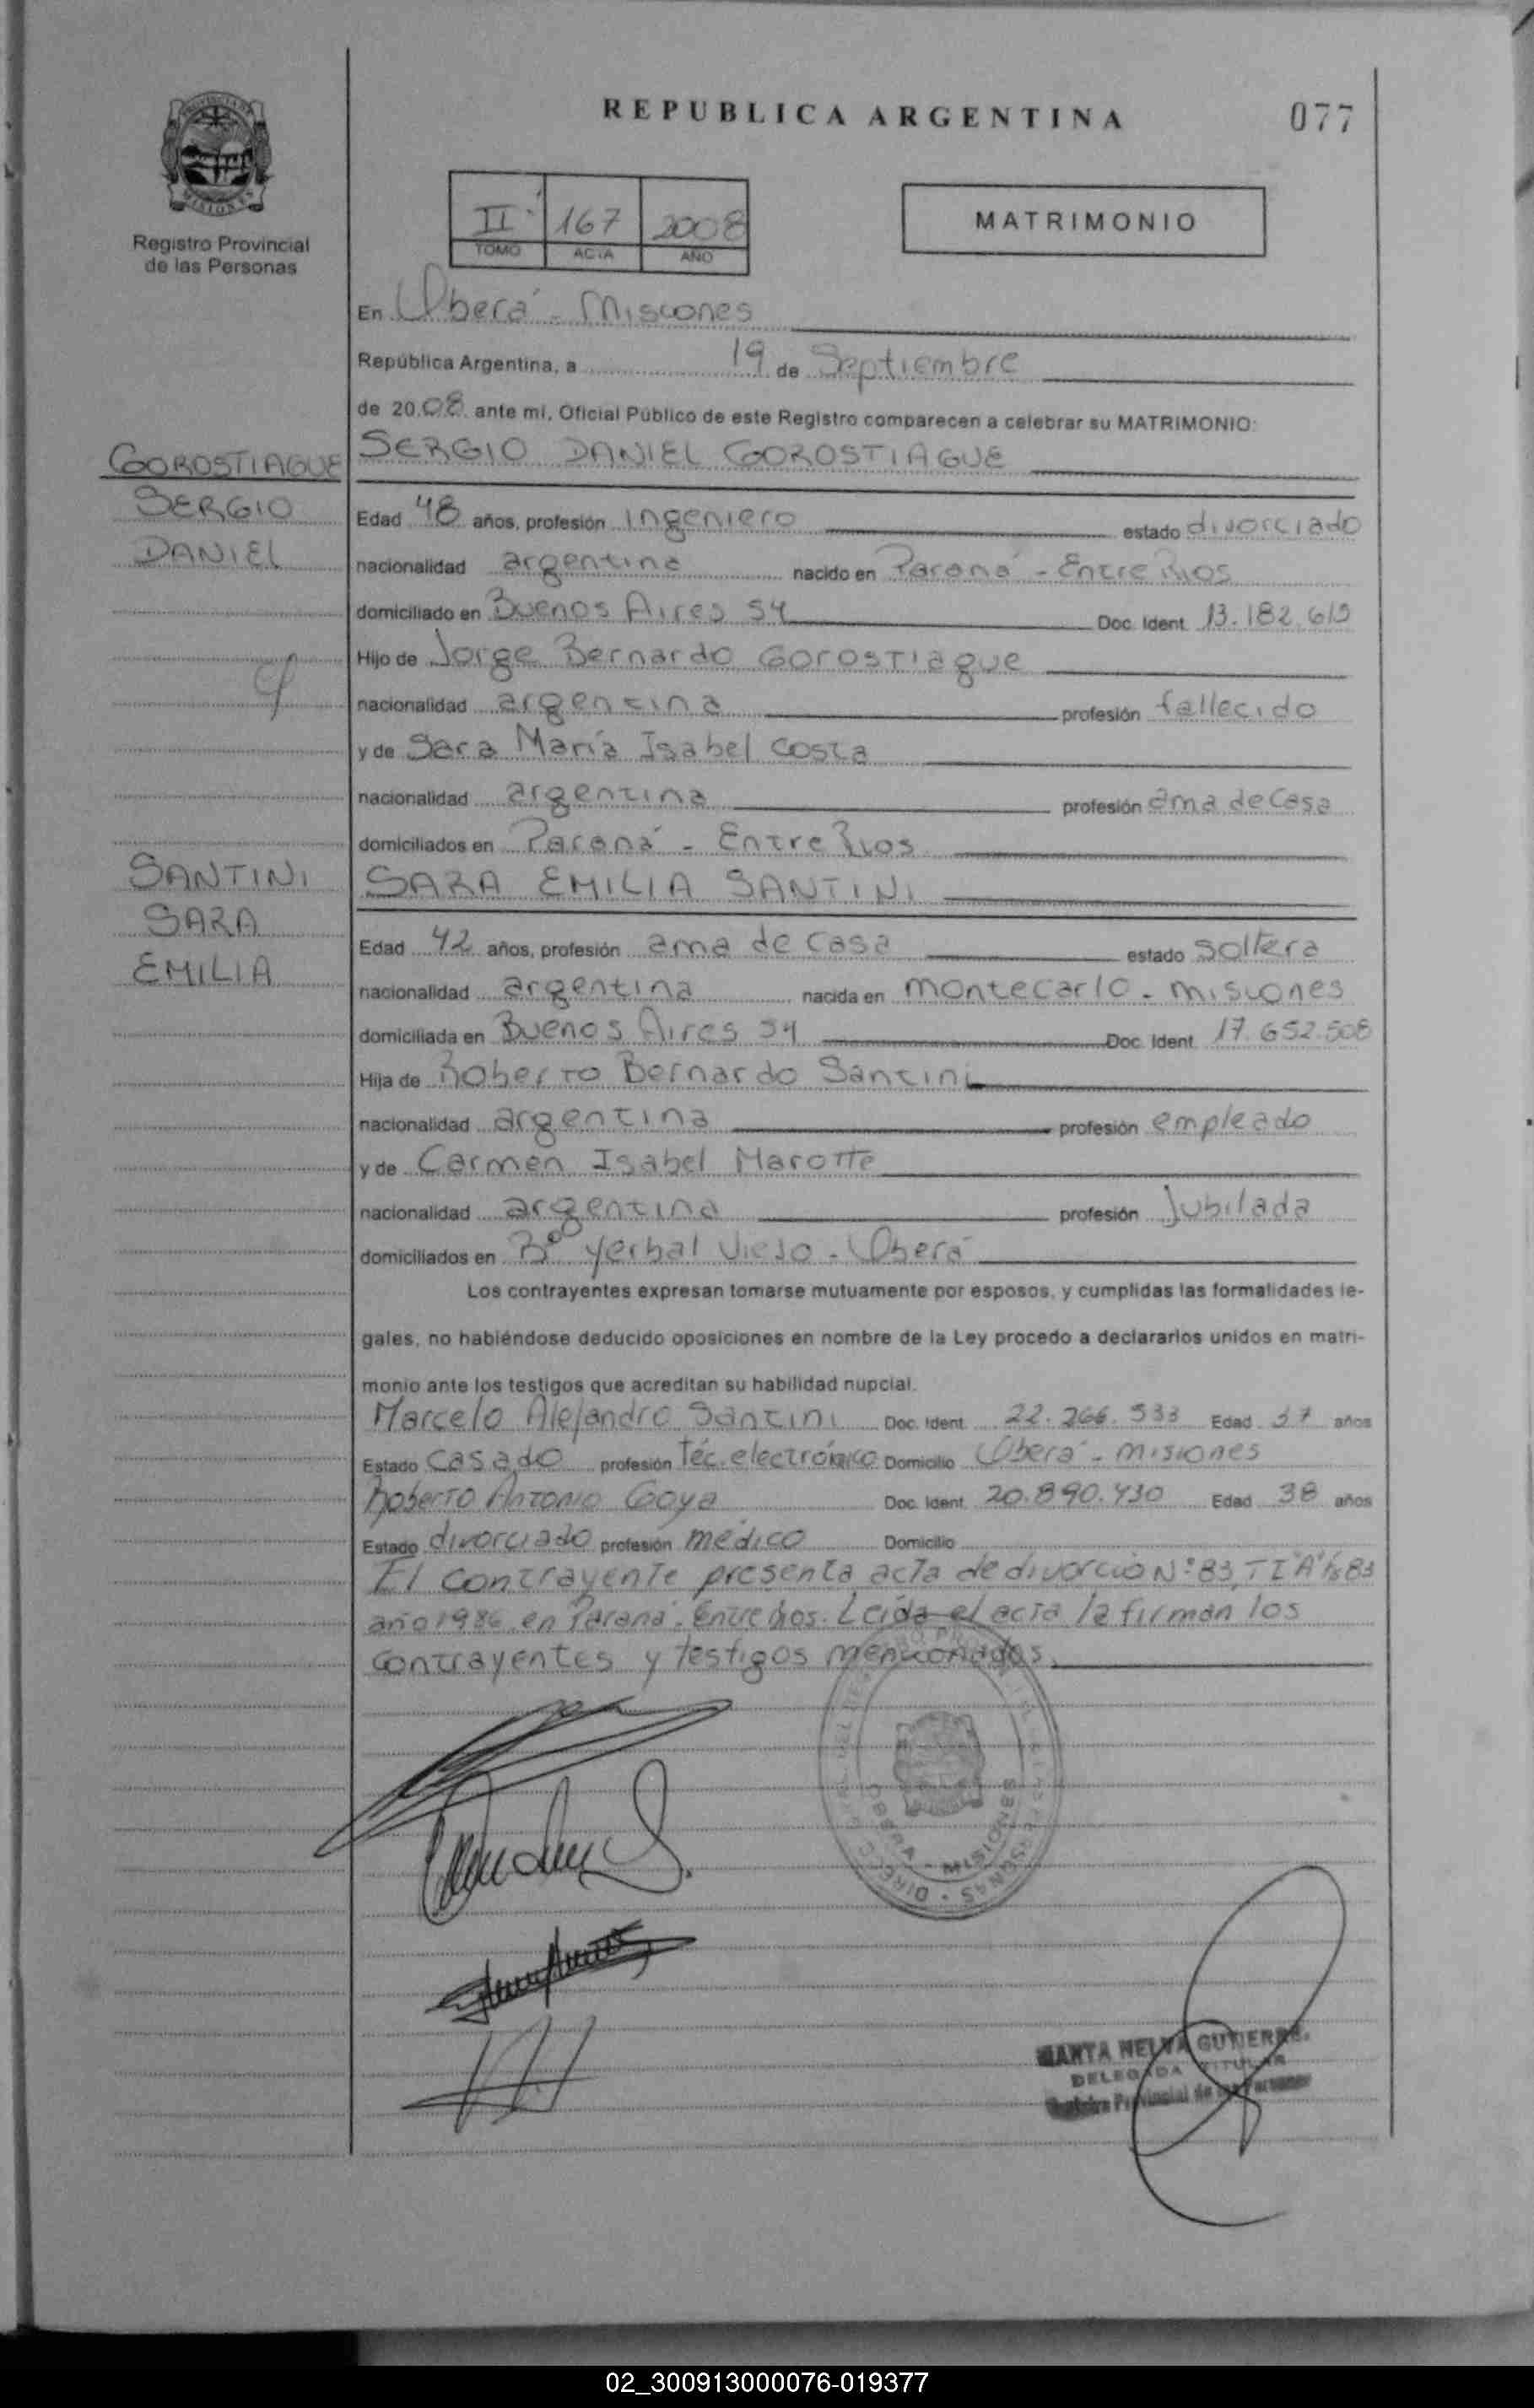 REPUBLICA ARGENTINA
077
PROVINCIA DE
MISIONES
Registro Provincial
de las Personas
II 167 2008
TOMO ACTA AÑO
MATRIMONIO
En Oberá - Misiones
República Argentina, a 19 de Septiembre
de 2008 ante mi, Oficial Público de este Registro comparecen a celebrar su MATRIMONIO:
GOROSTIAGUE
SERGIO
DANIEL
SERGIO DANIEL GOROSTIAGUE
Edad 48 años, profesión Ingeniero estado divorciado
nacionalidad argentina nacido en Paraná - Entre Rios
domiciliado en Buenos Aires 54 Doc. Ident. 13.182.615
Hijo de Jorge Bernardo Gorostiague
nacionalidad argentina profesión fallecido
y de Sara María Isabel Costa
nacionalidad argentina profesión ama de casa
domiciliados en Paraná - Entre Rios
SANTINI
SARA
EMILIA
SARA EMILIA SANTINI
Edad 42 años, profesión ama de casa estado soltera
nacionalidad argentina nacida en montecarlo - misiones
domiciliada en Buenos Aires 54 Doc. Ident. 17.652.508
Hija de Roberto Bernardo Santini
nacionalidad argentina profesión empleado
y de Carmen Isabel Marotte
nacionalidad argentina profesión Jubilada
domiciliados en B° yerbal viejo - Oberá
Los contrayentes expresan tomarse mutuamente por esposos, y cumplidas las formalidades le-
gales, no habiéndose deducido oposiciones en nombre de la Ley procedo a declararlos unidos en matri-
monio ante los testigos que acreditan su habilidad nupcial.
Marcelo Alejandro Santini Doc. Ident. 22.266.533 Edad 37 años
Estado casado profesión téc. electrónico Domicilio Oberá - misiones
Roberto Antonio Goya Doc. Ident. 20.890.430 Edad 38 años
Estado divorciado profesión médico Domicilio
El contrayente presenta acta de divorcio N° 83, T I "A" fs 83
año 1986 en Paraná - Entre Rios. Leida el acta la firman los
contrayentes y testigos mencionados.
OBERA - MISIONES
MARTA NELVA GUTIERRE
DELEGADA TITULAR
Provincial de las Personas
02_300913000076-019377